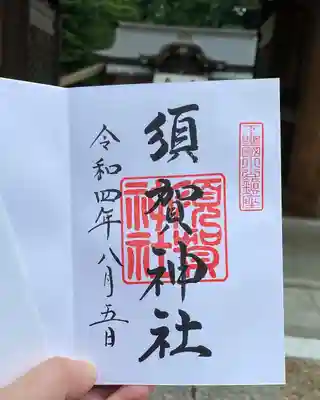 須賀神社
須賀
神社
令和四年八月五日